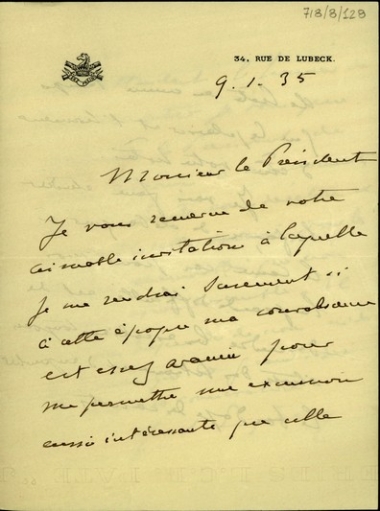 7/8/8/129
34, RUE DE LUBECK.
9.1.35
Monsieur le Président
Je vous remercie de votre
aimable invitation à laquelle
je me rendrai surement si
à cette époque ma convalescence
est assez avancée pour
me permettre une excursion
aussi intéressante que celle